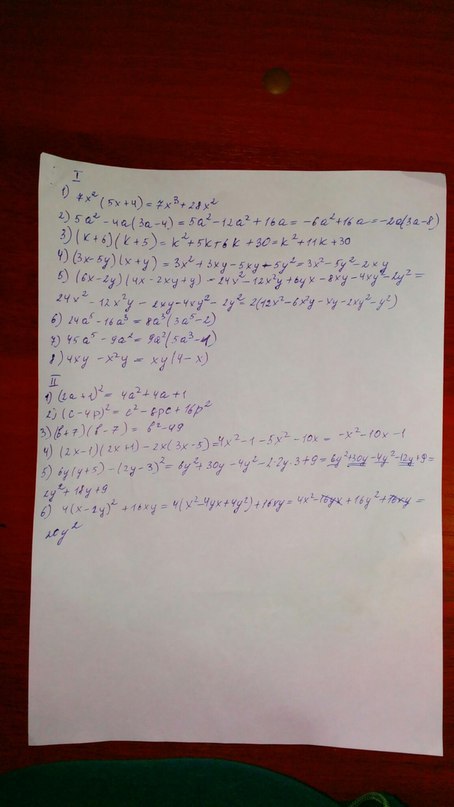 I
1) 7x² (5x+4) = 7x³ + 28x²
2) 5a² - 4a(3a-4) = 5a² - 12a² + 16a = -6a² + 16a = -2a(3a-8)
3) (k+6)(k+5) = k² + 5k + 6k + 30 = k² + 11k + 30
4) (3x-5y)(x+y) = 3x² + 3xy - 5xy - 5y² = 3x² - 5y² - 2xy
5) (6x-2y)(4x-2xy+y) = 24x² - 12x²y + 6yx - 8xy - 4xy² - 2y² =
24x² - 12x²y - 2xy - 4xy² - 2y² = 2(12x² - 6x²y - xy - 2xy² - y²)
6) 24a⁵ - 16a³ = 8a³(3a² - 2)
7) 45a⁵ - 9a² = 9a²(5a³ - 1)
8) 4xy - x²y = xy(4-x)
II
1) (2a+1)² = 4a² + 4a + 1
2) (c-4p)² = c² - 8pc + 16p²
3) (b+7)(b-7) = b² - 49
4) (2x-1)(2x+1) - 2x(3x-5) = 4x² - 1 - 5x² - 10x = -x² - 10x - 1
5) 6y(y+5) - (2y-3)² = 6y² + 30y - 4y² - 2·2y·3 + 9 = 6y² + 30y - 4y² - 12y + 9 =
2y² + 18y + 9
6) 4(x-2y)² + 16xy = 4(x² - 4yx + 4y²) + 16xy = 4x² - 16yx + 16y² + 16xy =
20y²